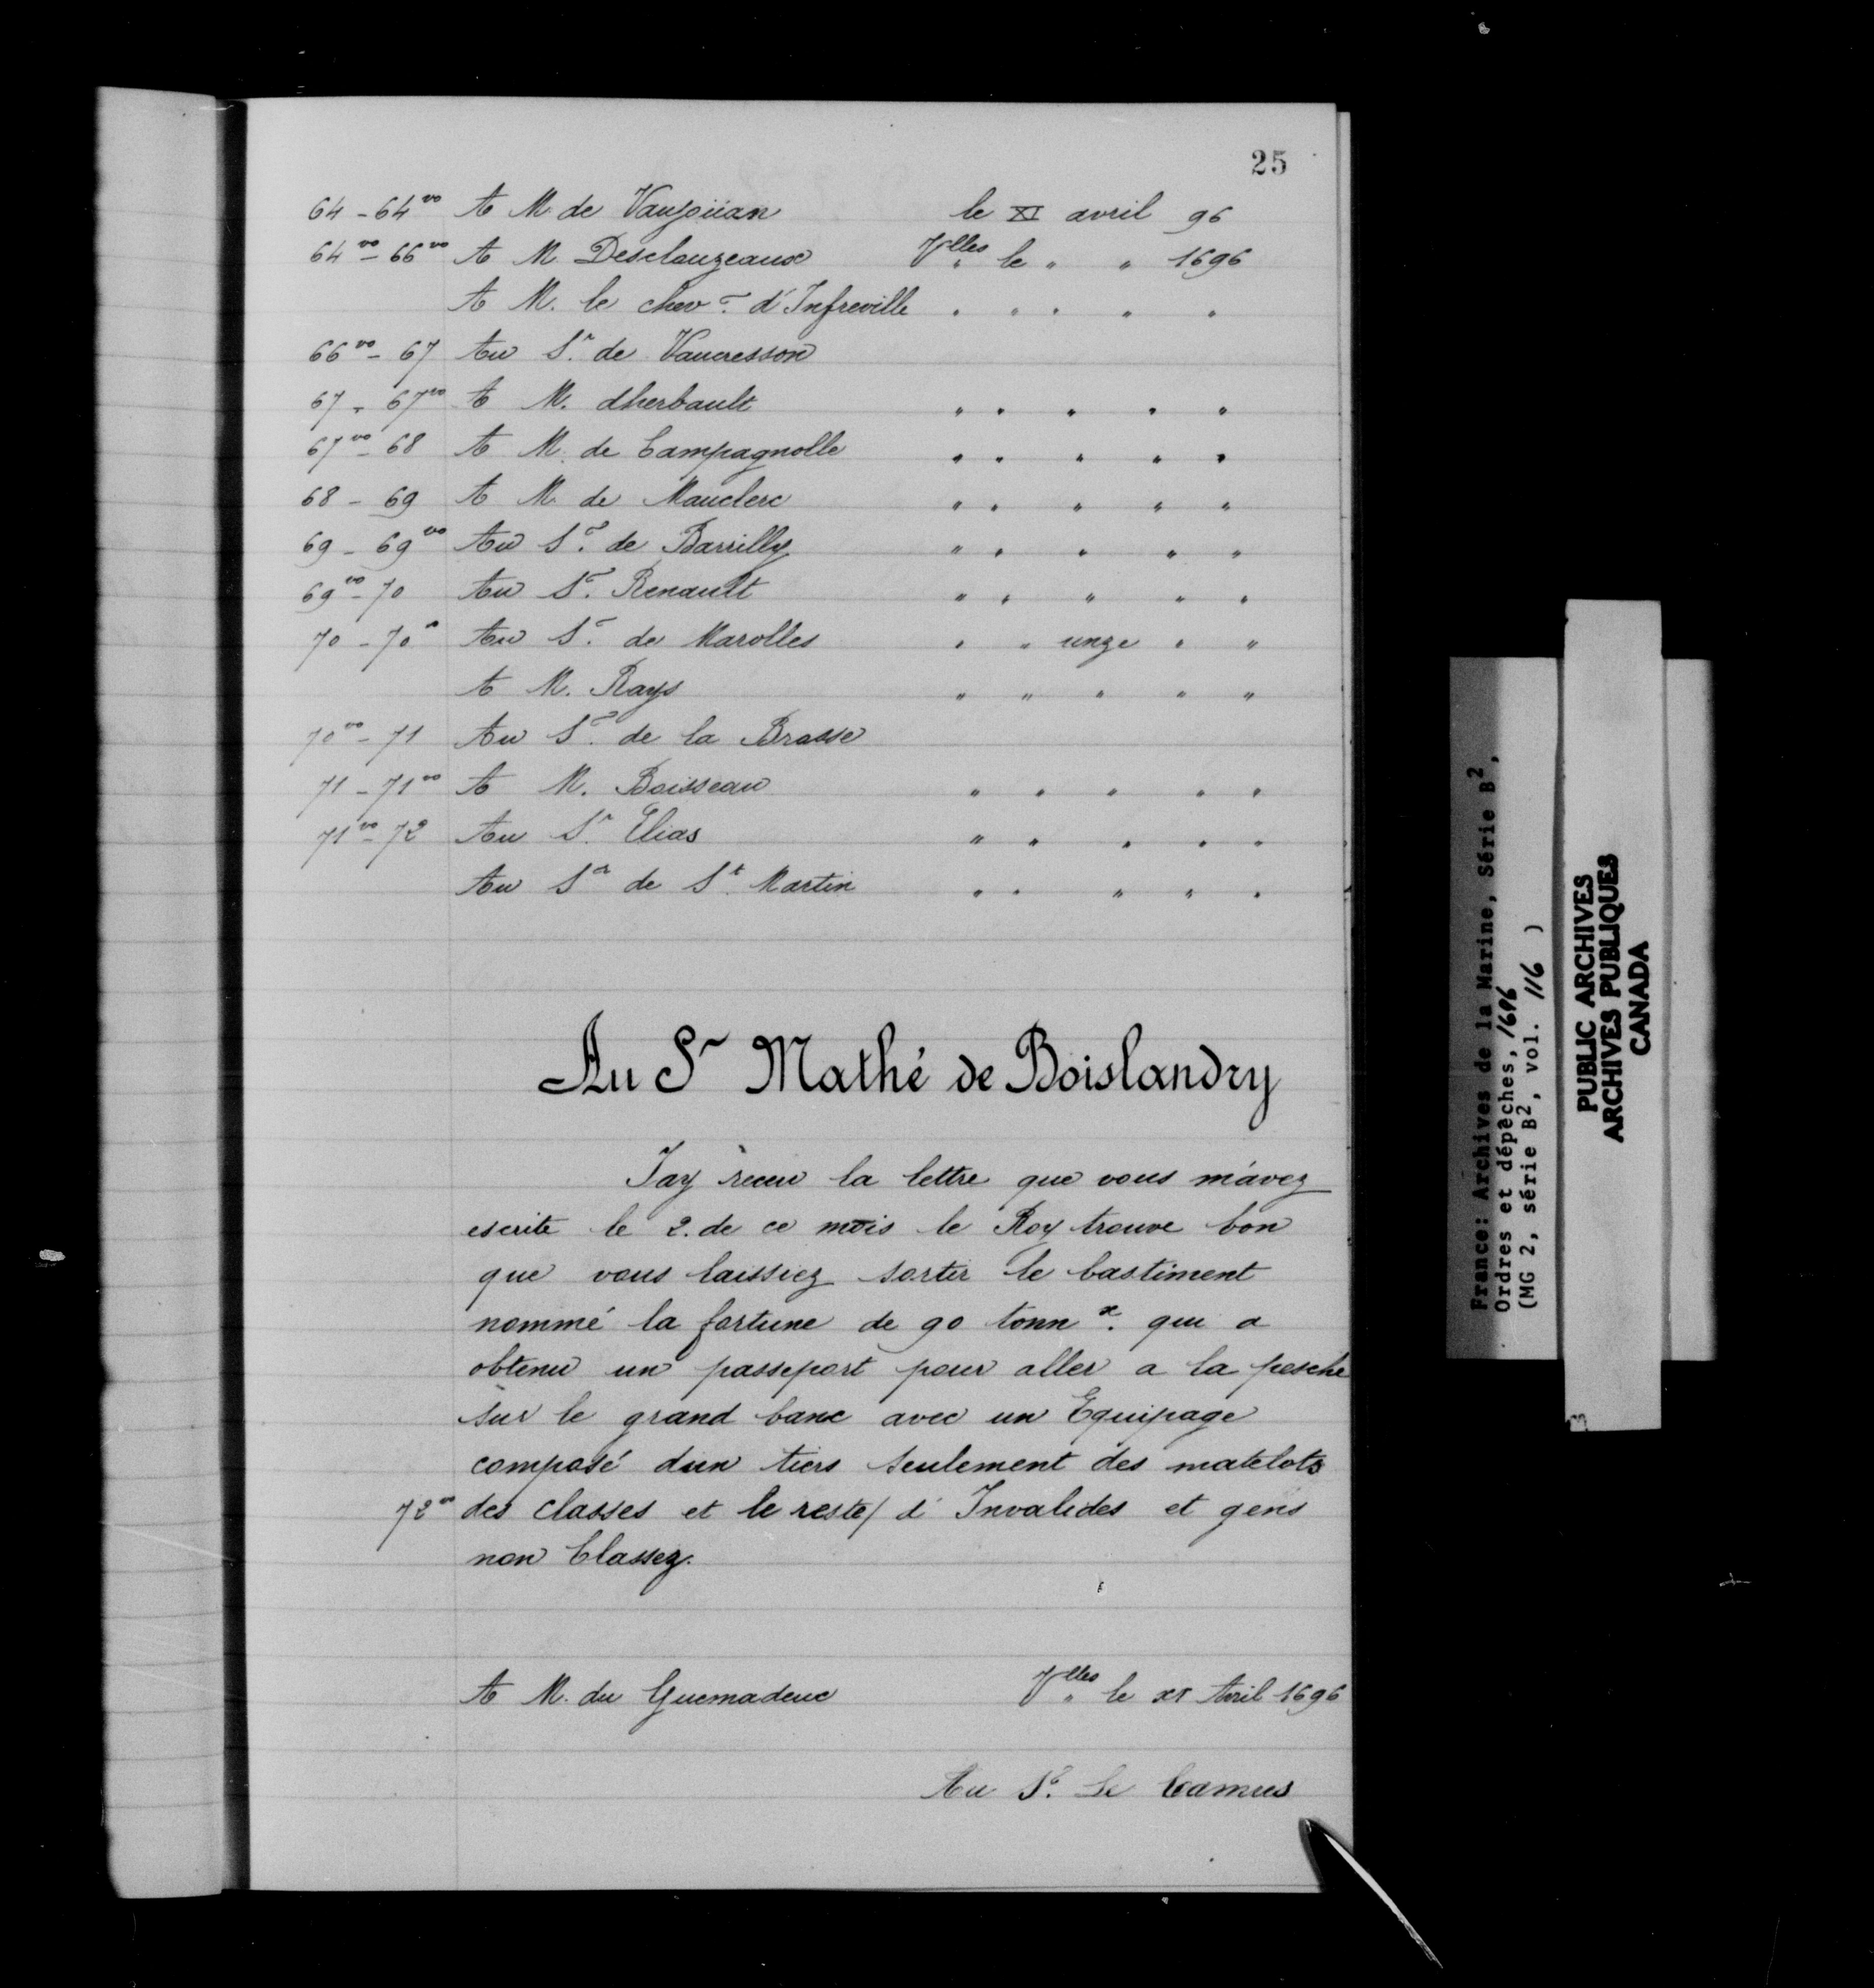 25
64 - 64vo A M de Vaujoüan le XI avril 96
64vo - 66vo A M Desclouzeaux Vlles le " " 1696
A M. le chevr. d'Infreville " " " " "
66vo - 67 Au Sr. de Vaucresson
67 - 67vo A M. dherbault " " " " "
67vo - 68 A M. de Campagnolle " " " " "
68 - 69 A M de Mauclerc " " " " "
69 - 69vo Au Sr. de Barrilly " " " " "
69vo - 70 Au Sr. Renault " " " " "
70 - 70vo Au Sr. de Marolles " " unze " "
A M. Rays " " " " "
70vo - 71 Au Sr. de la Brosse
71 - 71vo A M. Boisseau " " " " "
71vo - 72 Au Sr. Elias " " " " "
Au Sr de St. Martin " " " " "
Au Sr Mathé de Boislandry
Jay receu la lettre que vous m'avez
escrite le 2. de ce mois le Roy trouve bon
que vous laissiez sortir le bastiment
nommé la fortune de 90 tonnx. qui a
obtenu un passeport pour aller a la pesche
sur le grand banc avec un Equipage
composé d'un tiers seulement des matelots
72vo des classes et le reste/ d'Invalides et gens
non Classez.
A M. du Guemadeuc Vlles le xi Avril 1696
Au Sr. Le Camus
France: Archives de la Marine, Série B2,
Ordres et dépêches, 1696
(MG 2, série B2, vol. 116 )
PUBLIC ARCHIVES
ARCHIVES PUBLIQUES
CANADA